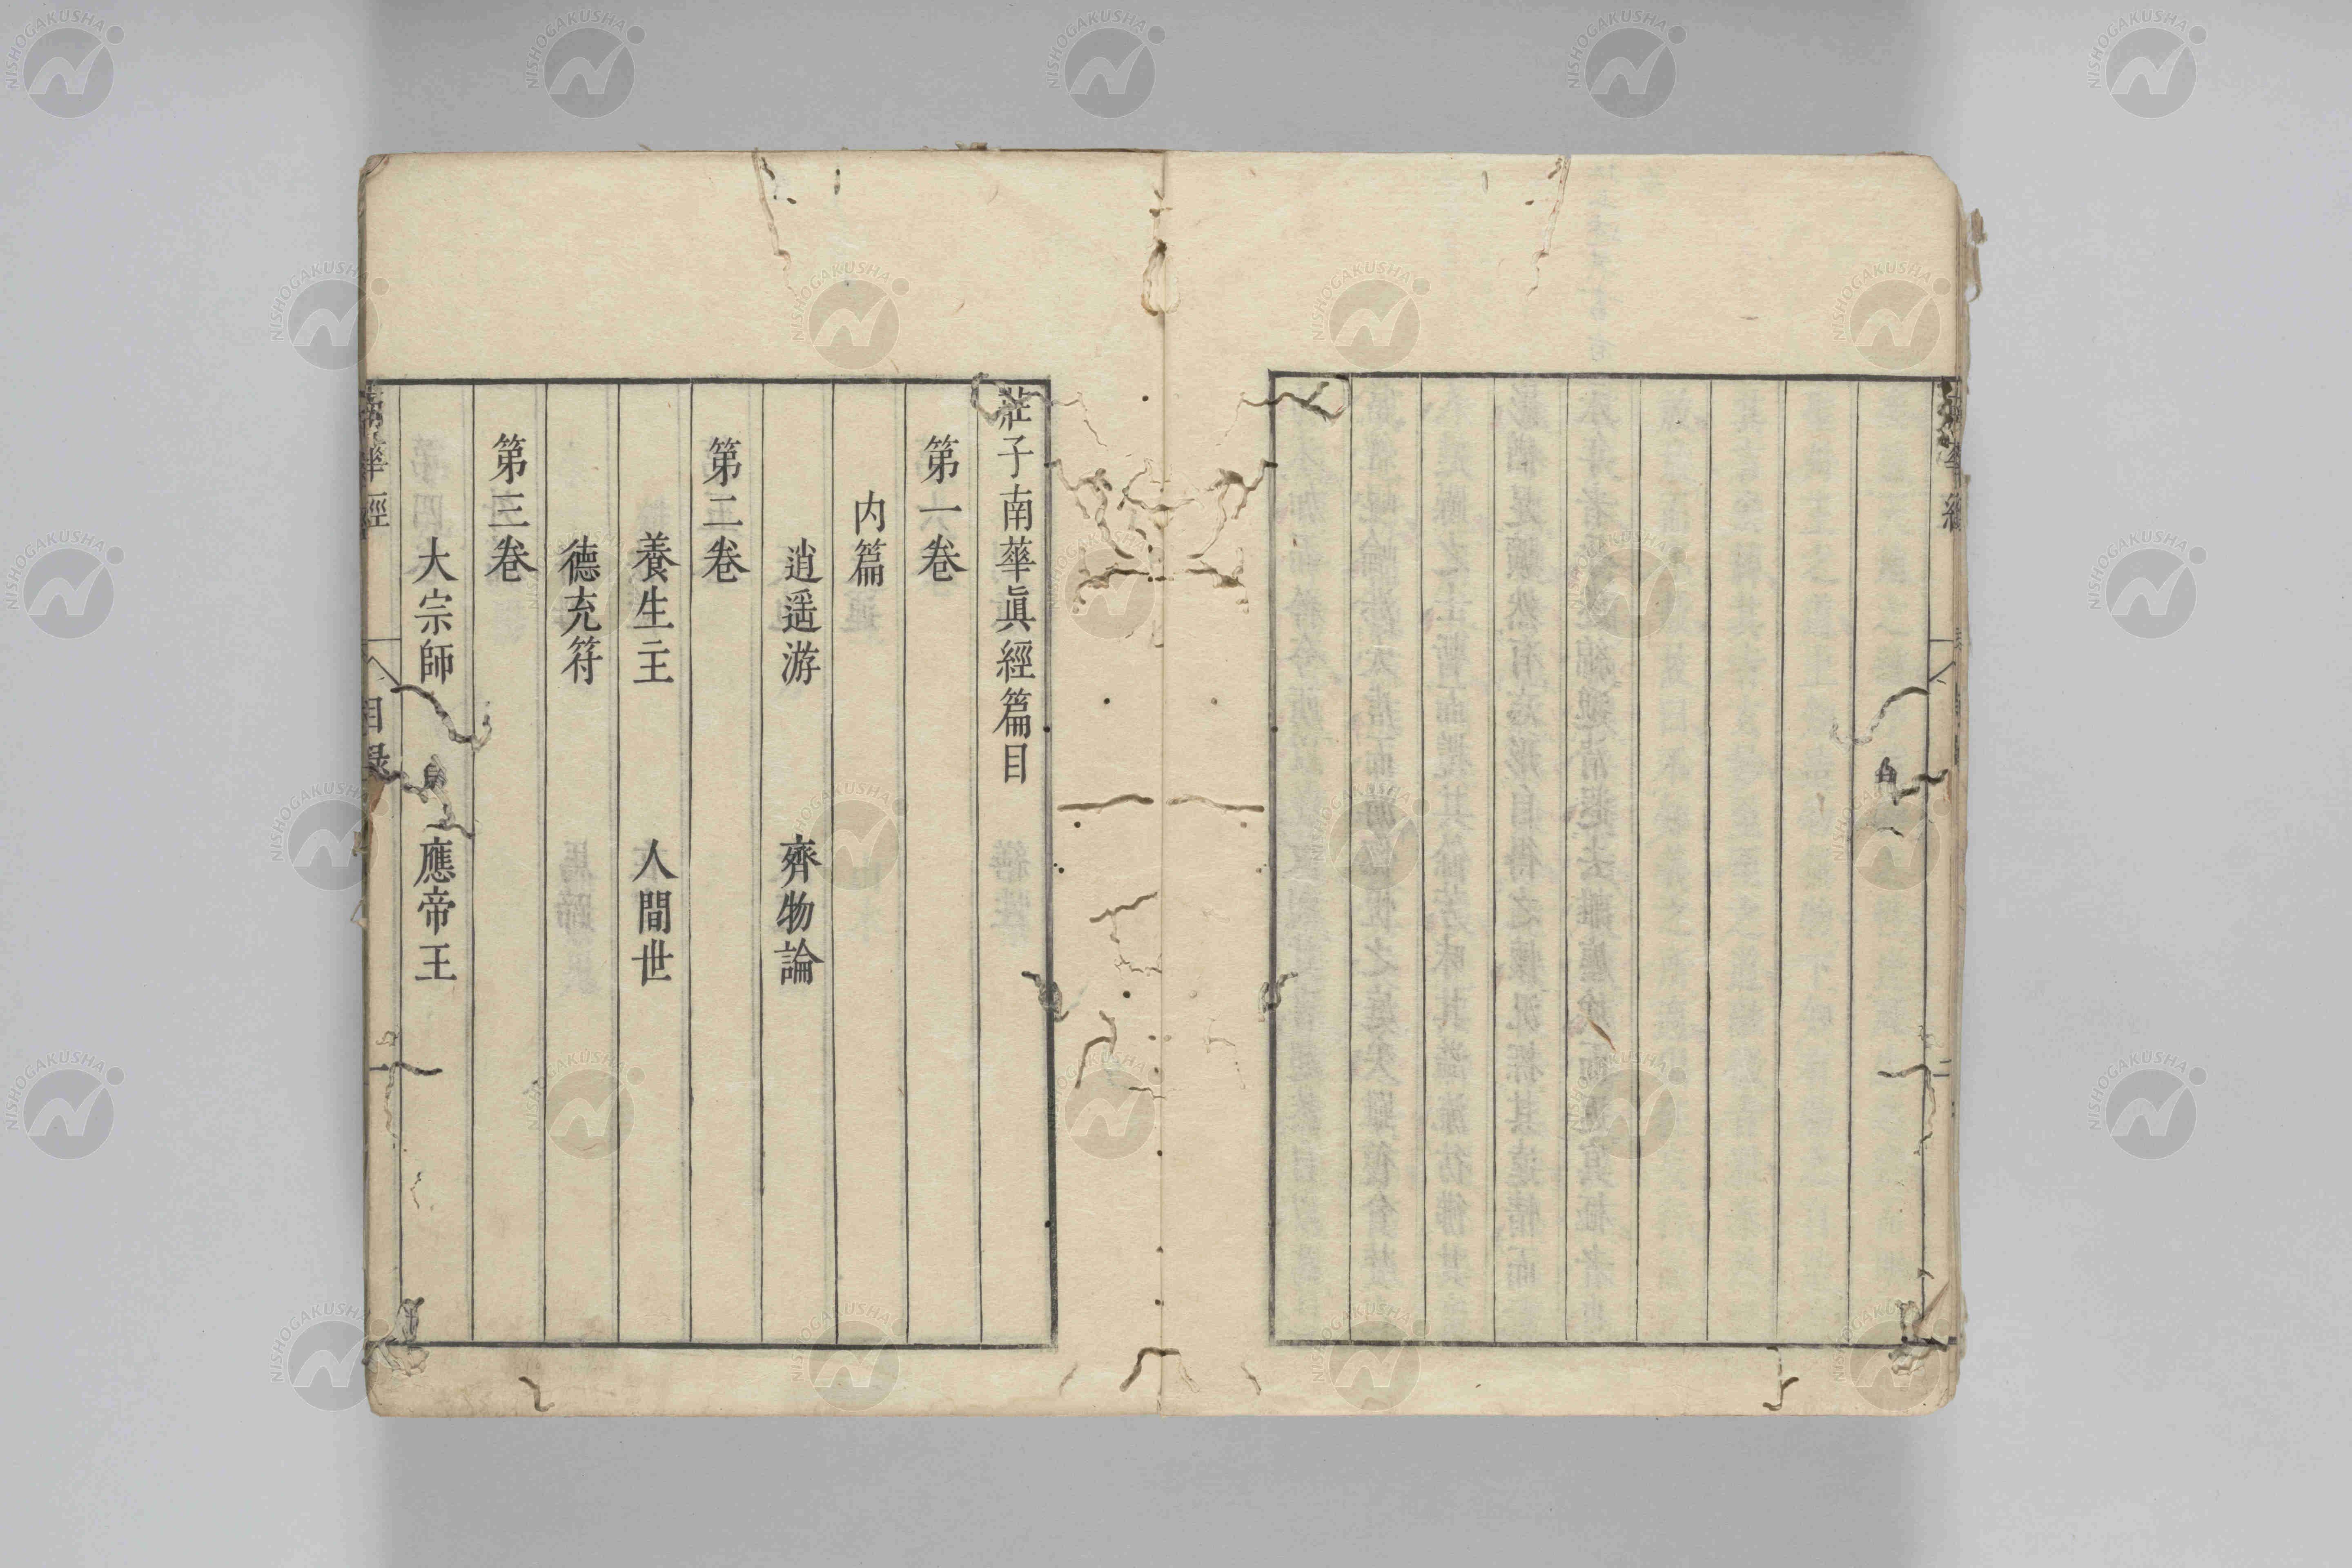 莊子南華眞經篇目
第一卷
内篇
逍遥游　齊物論
第二卷
養生主　人間世
德充符
第三卷
大宗師　應帝王
南華經　目録
NISHOGAKUSHA